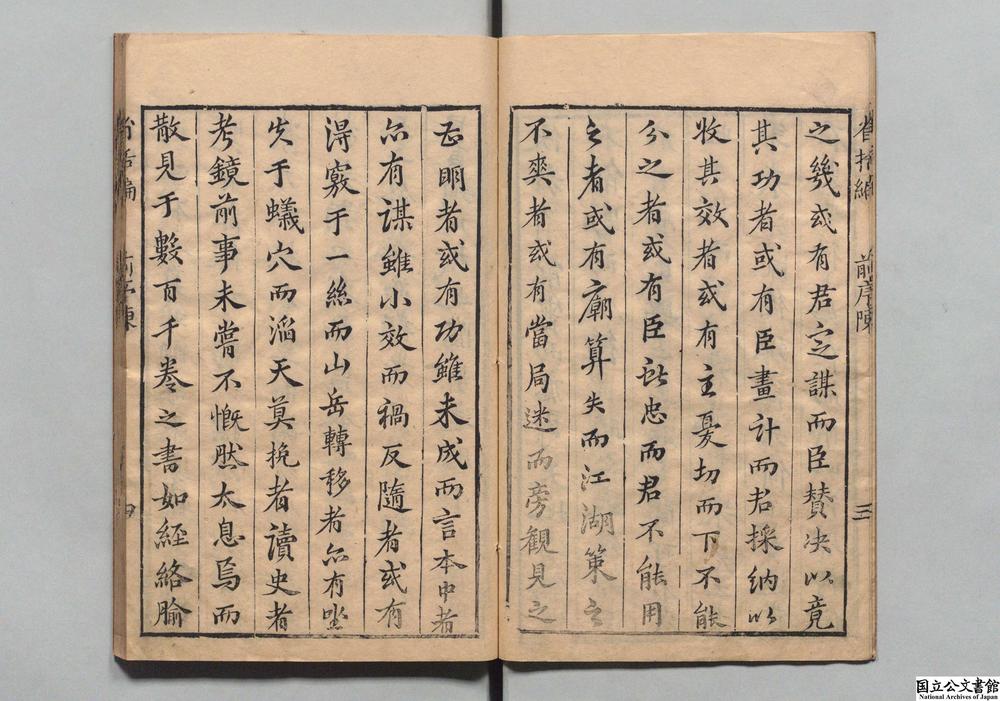 之幾或有君定謀而臣贊决以竟
其功者或有臣畫計而君採納以
收其效者或有主憂切而下不能
分之者或有臣訟忠而君不能用
之者或有廟算失而江湖策之
不爽者或有當局迷而旁觀見之
前序陳
三
正明者或有功雖未成而言本中者
亦有謀雖小效而禍反隨者或有
淂竅于一絲而山岳轉移者亦有㘴
失于蟻穴而滔天莫挽者讀史者
考鏡前事未嘗不慨然太息焉而
散見于數百千卷之書如經絡腧
四
国立公文書館
National Archives of Japan